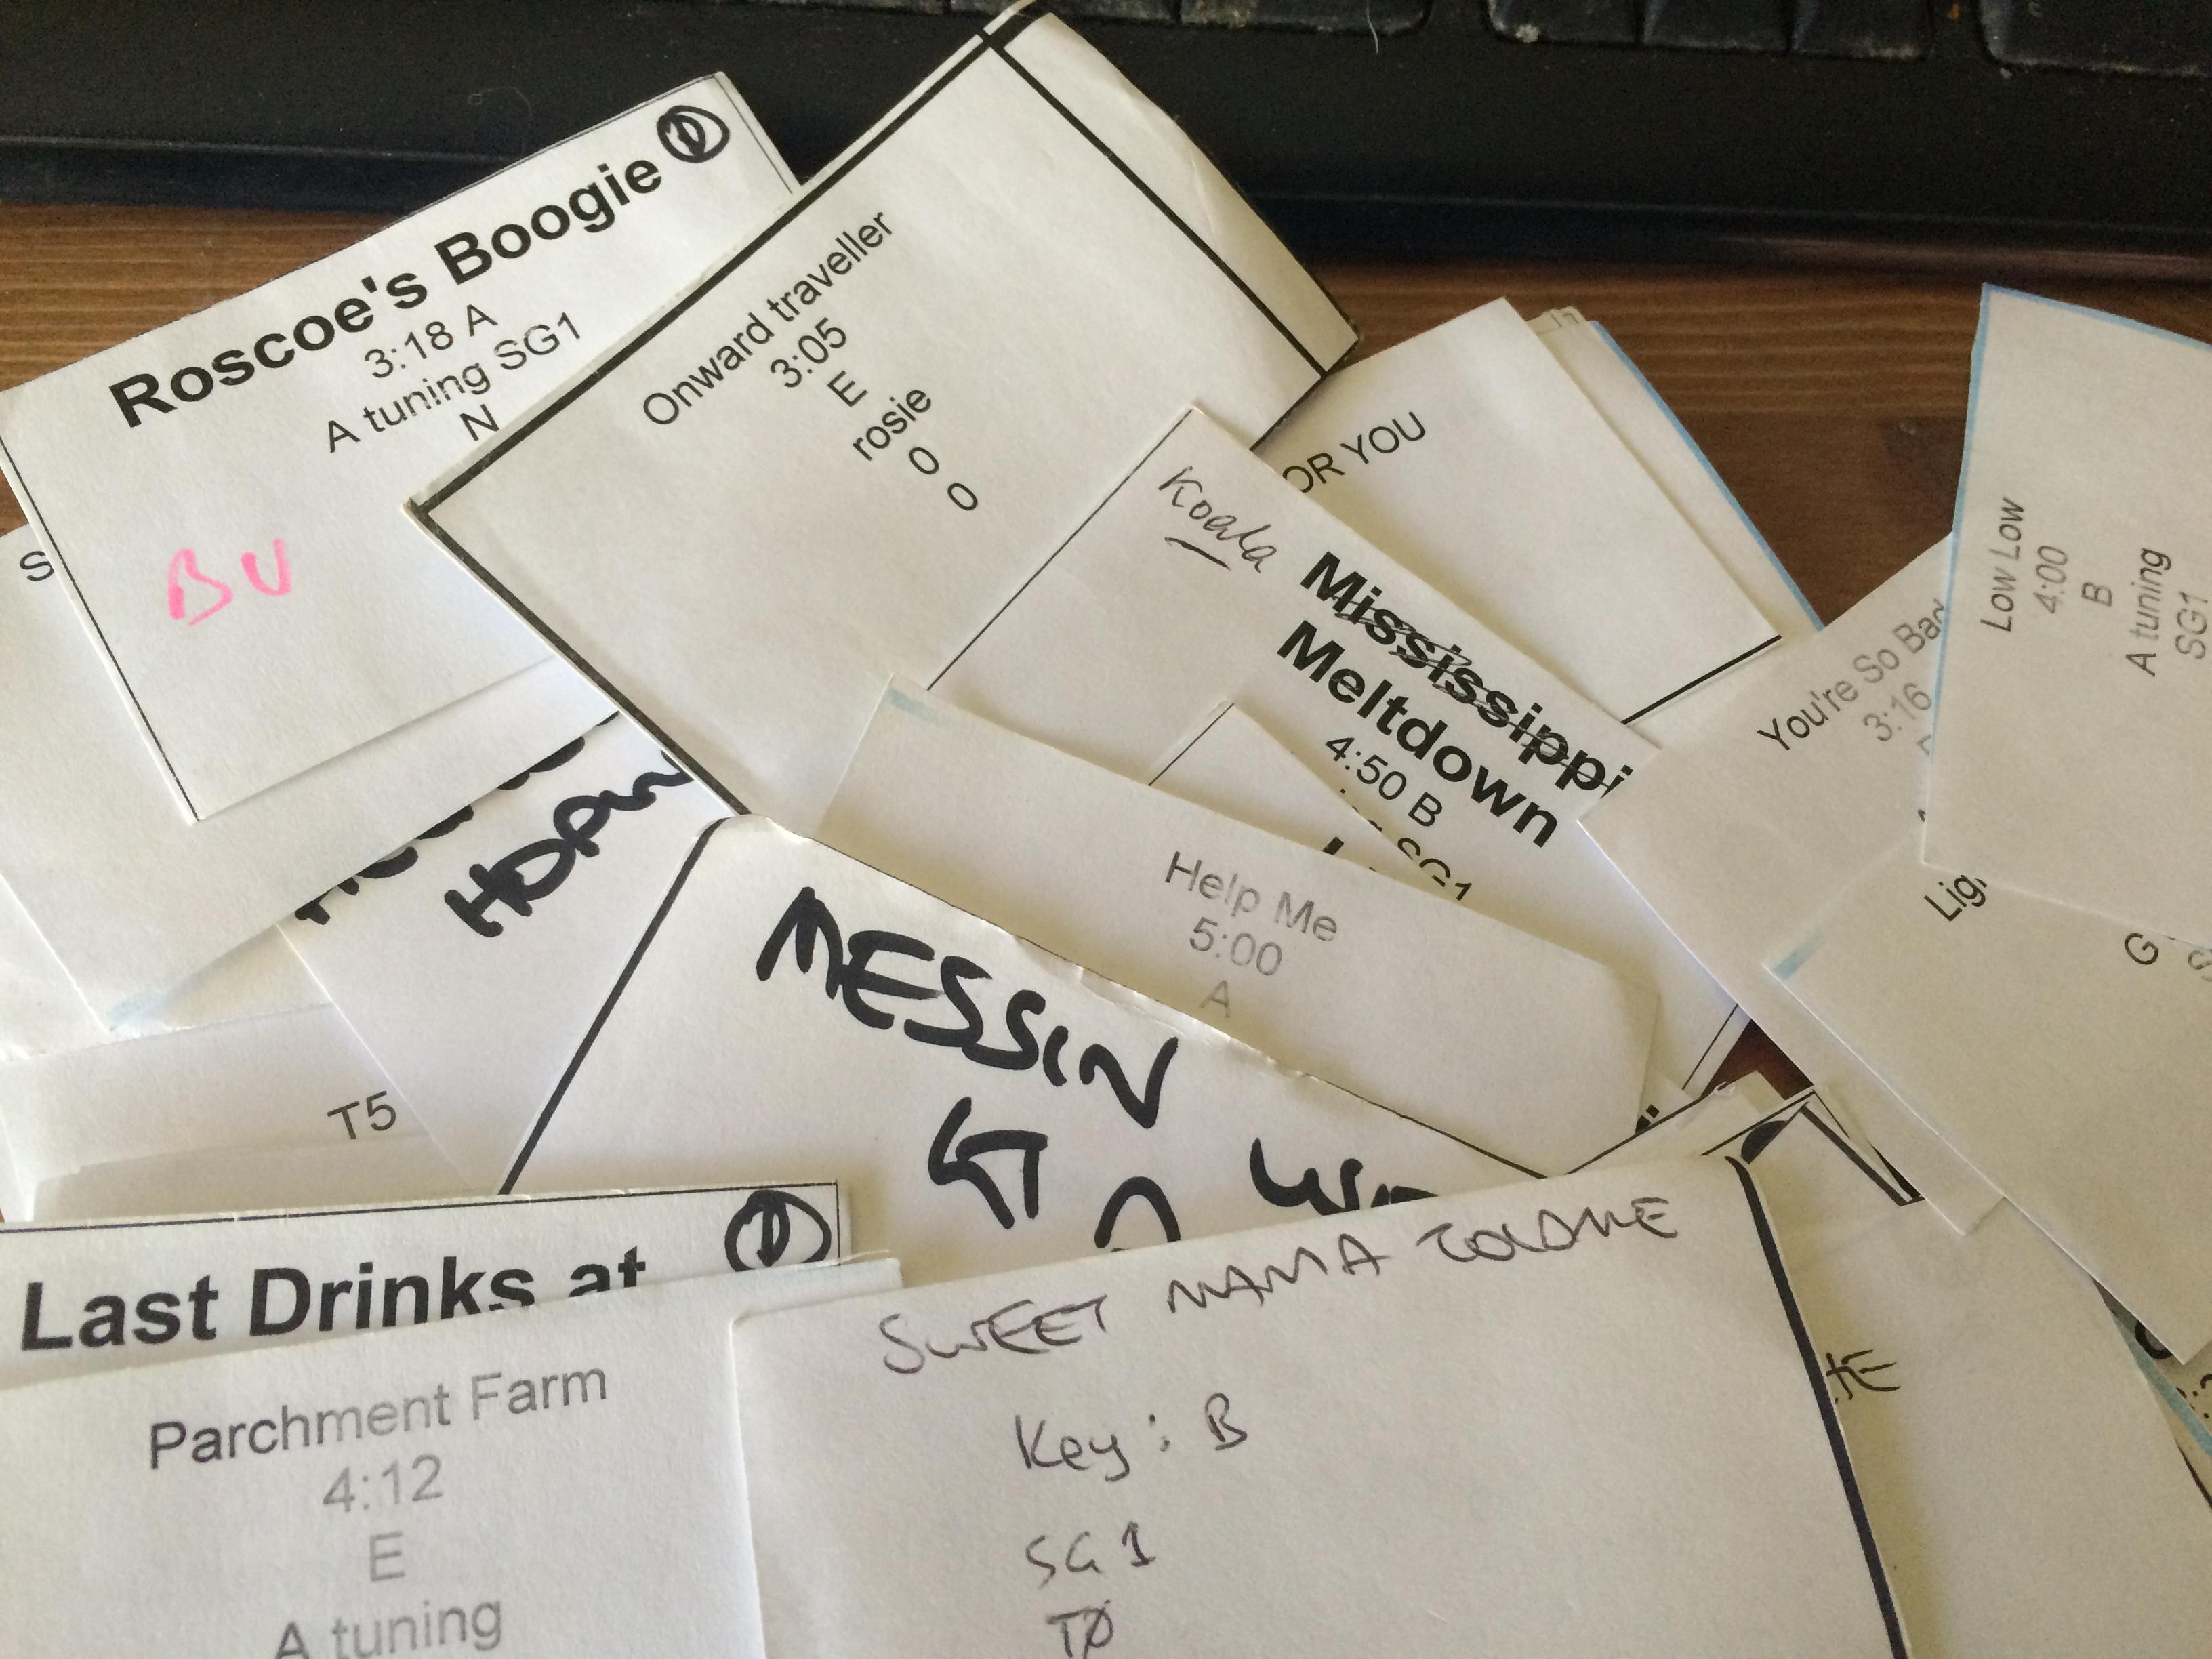 Roscoe's Boogie
3:18 A
A tuning SG1
N
BU
Onward traveller
3:05
E
rosie
0
0
OR YOU
Koala
Mississippi
Meltdown
4:50 B
SG1
Low Low
4:00
B
A tuning
SG1
You're So Bad
3:16
S
Help Me
5:00
A
Lig
G
MESSIN
T5
Last Drinks at
Parchment Farm
4:12
E
A tuning
SWEET MAMA TOLD ME
Key: B
SG1
TØ